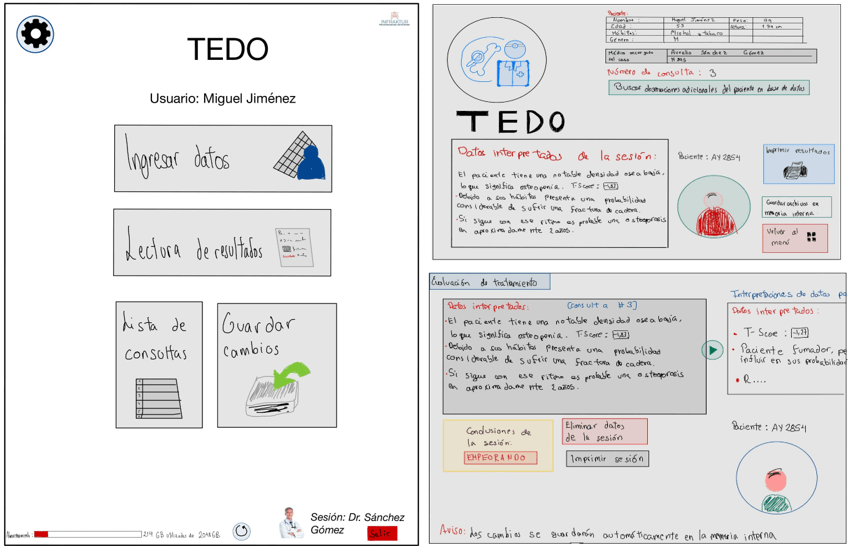 TEDO
Usuario: Miguel Jiménez
Ingresar datos
Lectura de resultados
Lista de
consultas
Guardar
cambios
Sesión: Dr. Sánchez
Gómez
Salir
Paciente:
Nombre: Miguel Jiménez Peso
Edad: 53
Hábitos: Alcohol o tabaco
Género: M
Médico encargado Aurelio Sánchez Gómez
del caso
Número de consulta: 3
Buscar observaciones adicionales del paciente en base de datos
TEDO
Datos interpretados de la sesión:
El paciente tiene una notable densidad osea baja,
lo que significa osteoponia. T-Score:
· Debido a sus hábitos presenta una probabilidad
considerable de sufrir una fractura de cadera.
· Si sigue con ese ritmo es probable una osteoporosis
en aproximadamente 2 años.
Paciente: AY2854
Imprimir resultados
Guardar archivos en
memoria interna
Volver al
menú
Evaluación de tratamiento
Datos interpretados: (consulta #3)
· El paciente tiene una notable densidad osea baja,
lo que significa osteoponia. T-Score:
· Debido a sus hábitos presenta una probabilidad
considerable de sufrir una fractura de cadera.
· Si sigue con ese ritmo es probable una osteoporosis
en aproximadamente 2 años.
Interpretaciones de datos pa
Datos interpretados:
· T-Score:
· Paciente fumador, pe
influir en sus probabilidad
· R....
Conclusiones de
la sesión:
EMPEORANDO
Eliminar datos
de la sesión
Imprimir sesión
Paciente: AY2854
Aviso: Los cambios se guardarán automáticamente en la memoria interna